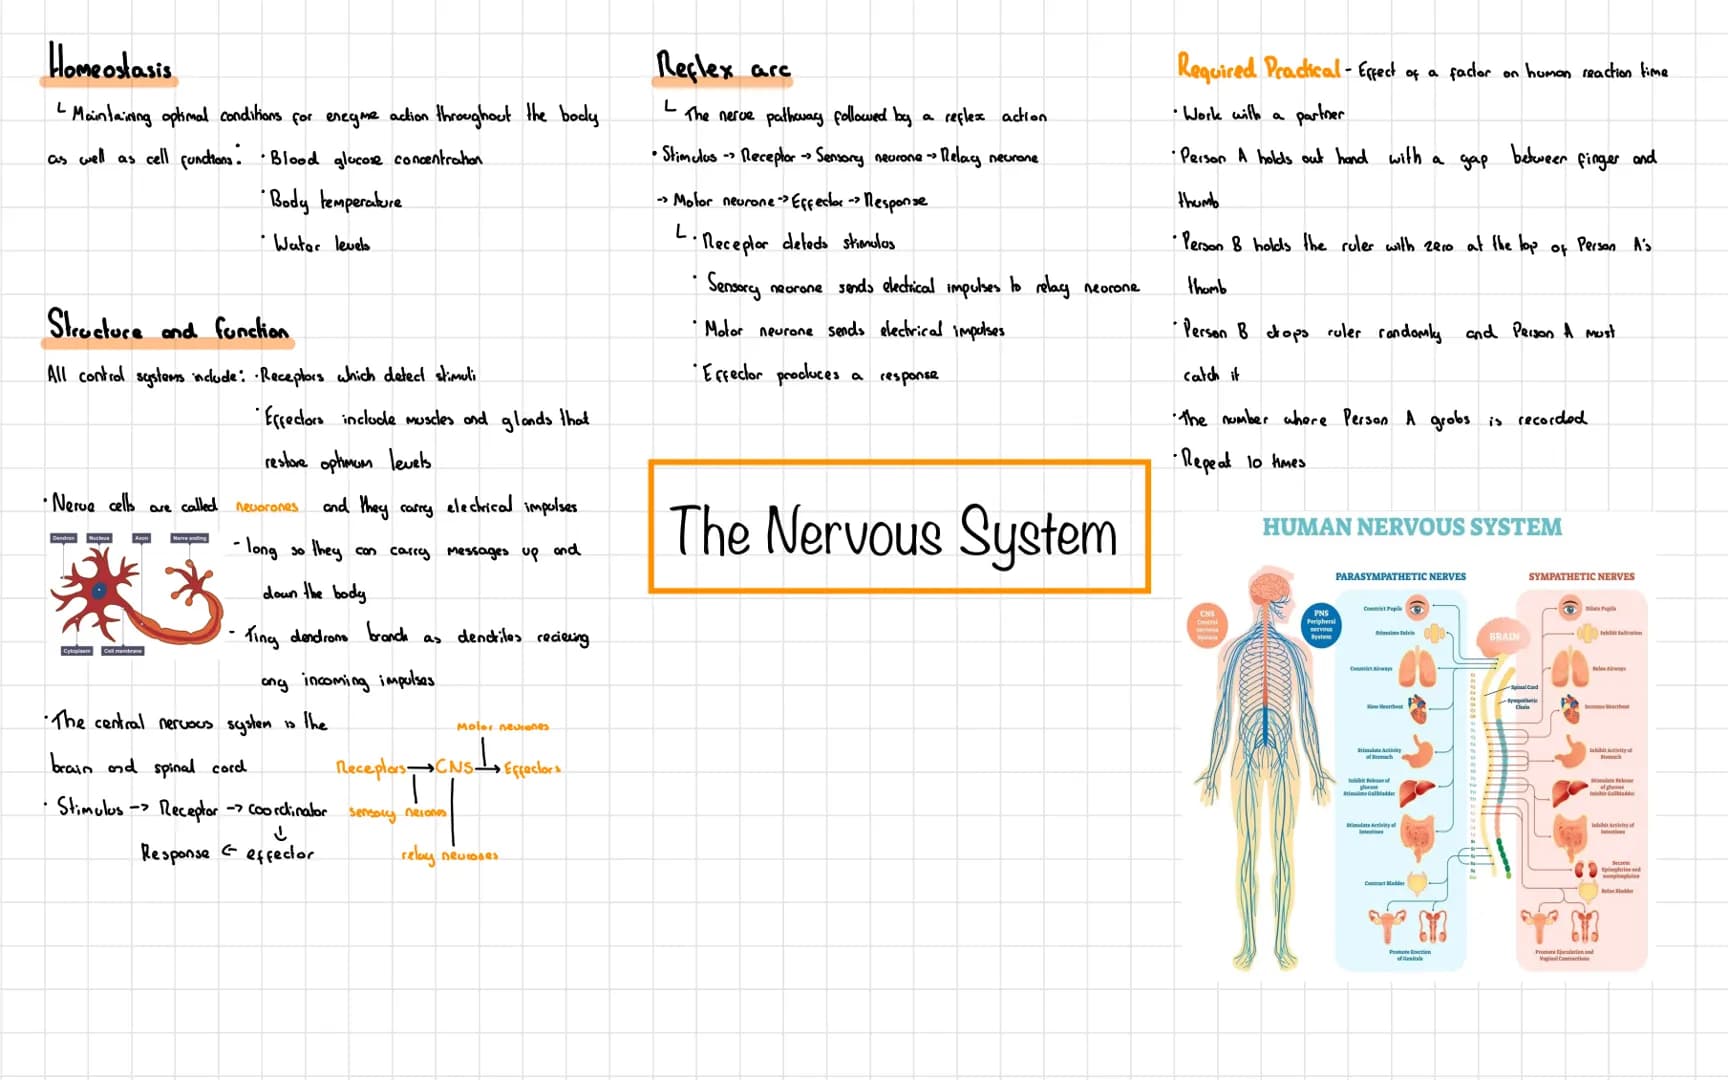 Homeostasis
└ Maintaining optimal conditions for enzyme action throughout the body
as well as cell functions: · Blood glucose concentration
· Body temperature
· Water levels
Structure and function
All control systems include: · Receptors which detect stimuli
· Effectors include muscles and glands that
restore optimum levels
· Nerve cells are called neurones and they carry electrical impulses
Dendron Nucleus Axon Nerve ending
Cytoplasm Cell membrane
- long so they can carry messages up and
down the body
- Tiny dendrons branch as dendrites recieving
any incoming impulses
· The central nervous system is the
brain and spinal cord
· Stimulus -> Receptor -> coordinator
↓
Response <- effector
Motor neurones
Receptors → CNS → Effectors
sensory neurones
relay neurones
Reflex arc
└ The nerve pathway followed by a reflex action
· Stimulus -> Receptor -> Sensory neurone -> Relay neurone
-> Motor neurone -> Effector -> Response
└ · Receptor detects stimulus
· Sensory neurone sends electrical impulses to relay neurone
· Motor neurone sends electrical impulses
· Effector produces a response
The Nervous System
Required Practical - Effect of a factor on human reaction time
· Work with a partner
· Person A holds out hand with a gap between finger and
thumb
· Person B holds the ruler with zero at the top of Person A's
thumb
· Person B drops ruler randomly and Person A must
catch it
· The number where Person A grabs is recorded
· Repeat 10 times
HUMAN NERVOUS SYSTEM
CNS
Central
nervous
System
PNS
Peripheral
nervous
System
PARASYMPATHETIC NERVES
Constrict Pupils
Stimulate Saliva
Constrict Airways
Slow Heartbeat
Stimulate Activity
of Stomach
Inhibit Release of
glucose
Stimulate Gallbladder
Stimulate Activity of
Intestines
Contract Bladder
Promote Erection
of Genitals
BRAIN
Spinal Cord
Sympathetic
Chain
SYMPATHETIC NERVES
Dilate Pupils
Inhibit Salivation
Relax Airways
Increase Heartbeat
Inhibit Activity of
Stomach
Stimulate Release
of glucose
Inhibit Gallbladder
Inhibit Activity of
Intestines
Secrete
Epinephrine and
norepinephrine
Relax Bladder
Promote Ejaculation and
Vaginal Contractions